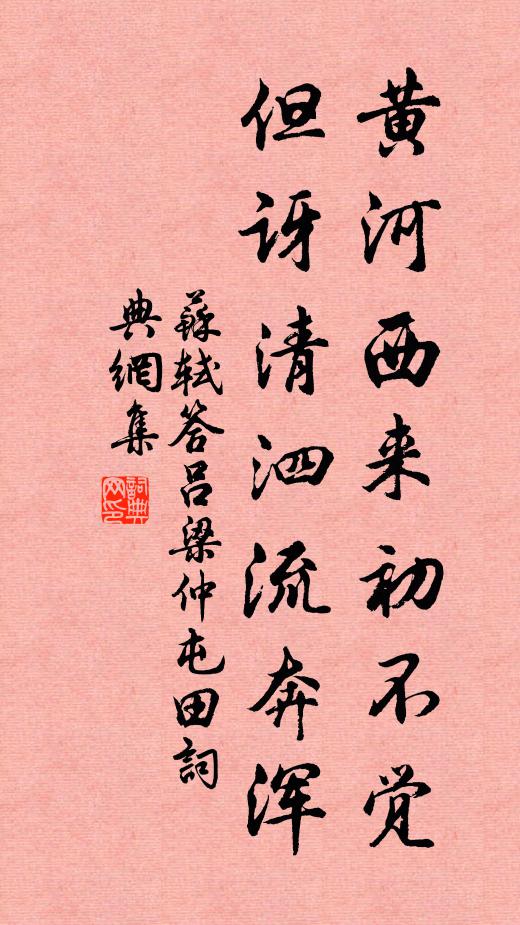 黄河西来初不觉
但讶清泗流奔浑
蘇轼答吕梁仲屯田詞
典網集
詞典网印